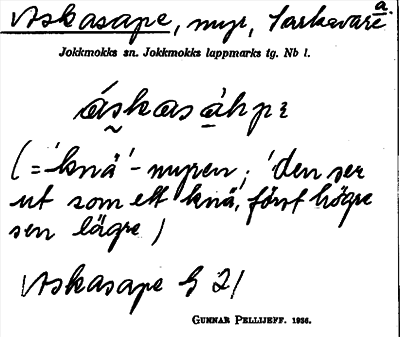 Askasape, myr, Tarkavare a.
Jokkmokks sn. Jokkmokks lappmarks tg. Nb l.
áskasàhpe
(= 'knä'-myren; 'den ser
ut som ett knä, först högre
sen lägre)
Askasape G 21
GUNNAR PELLIJEFF. 1936.